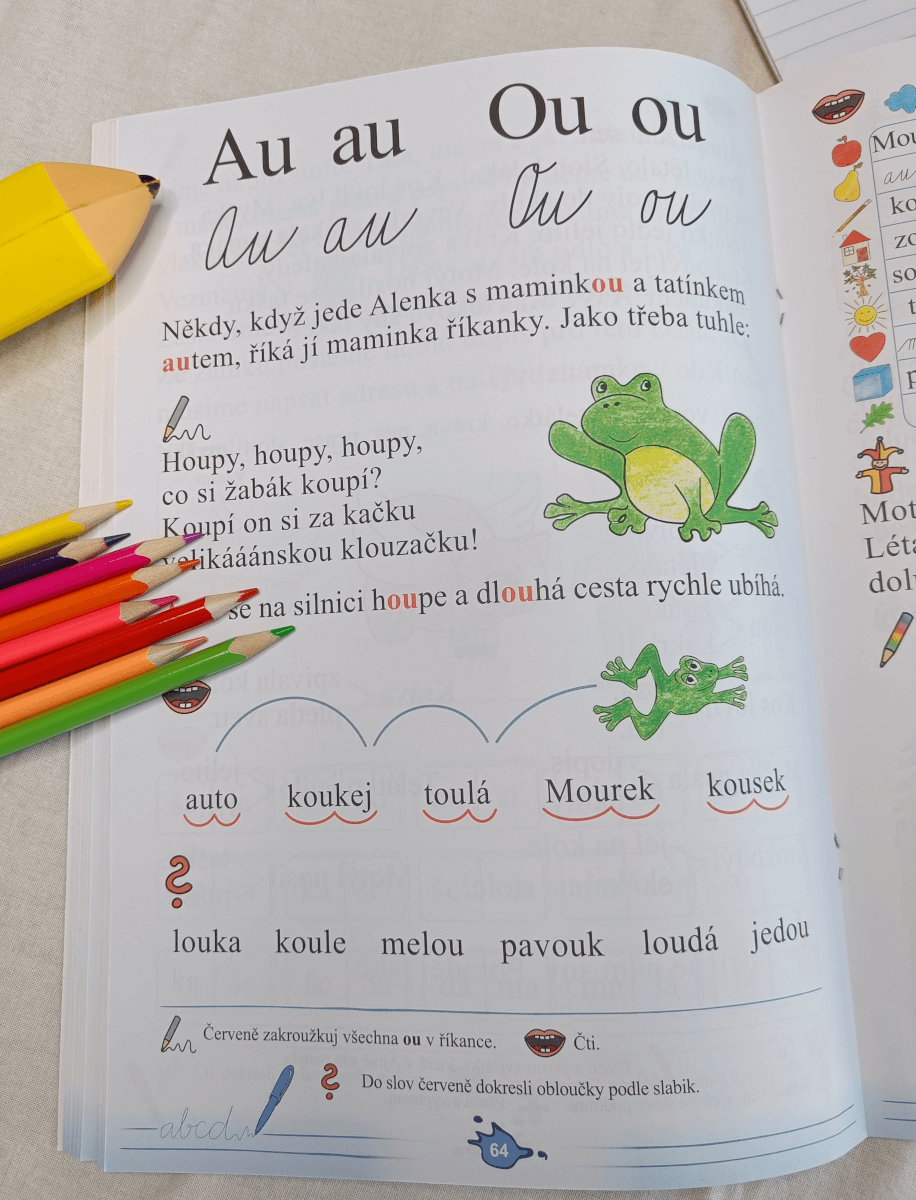 Au au Ou ou
Au au Ou ou
Někdy, když jede Alenka s maminkou a tatínkem
autem, říká jí maminka říkanky. Jako třeba tuhle:
Houpy, houpy, houpy,
co si žabák koupí?
Koupí on si za kačku
velikááánskou klouzačku!
se na silnici houpe a dlouhá cesta rychle ubíhá.
auto koukej toulá Mourek kousek
?
louka koule melou pavouk loudá jedou
Červeně zakroužkuj všechna ou v říkance. Čti.
? Do slov červeně dokresli obloučky podle slabik.
abcd
64
Mot
Léta
dolu